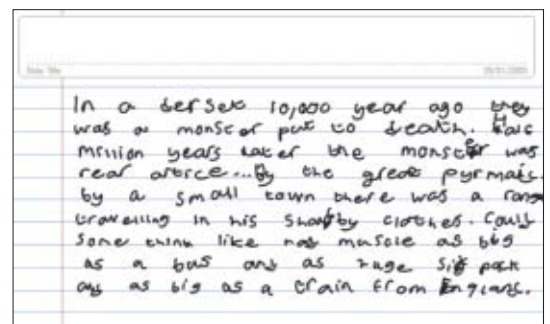 In a derset 10,000 year ago they
was a monster put to death. Half
million years later the monster was
rear artice...By the great pyrmats.
by a small town there was a range
travelling in his shabby clothes. Could
some think like has muscle as big
as a bus and as huge six pack
and as big as a train from England.